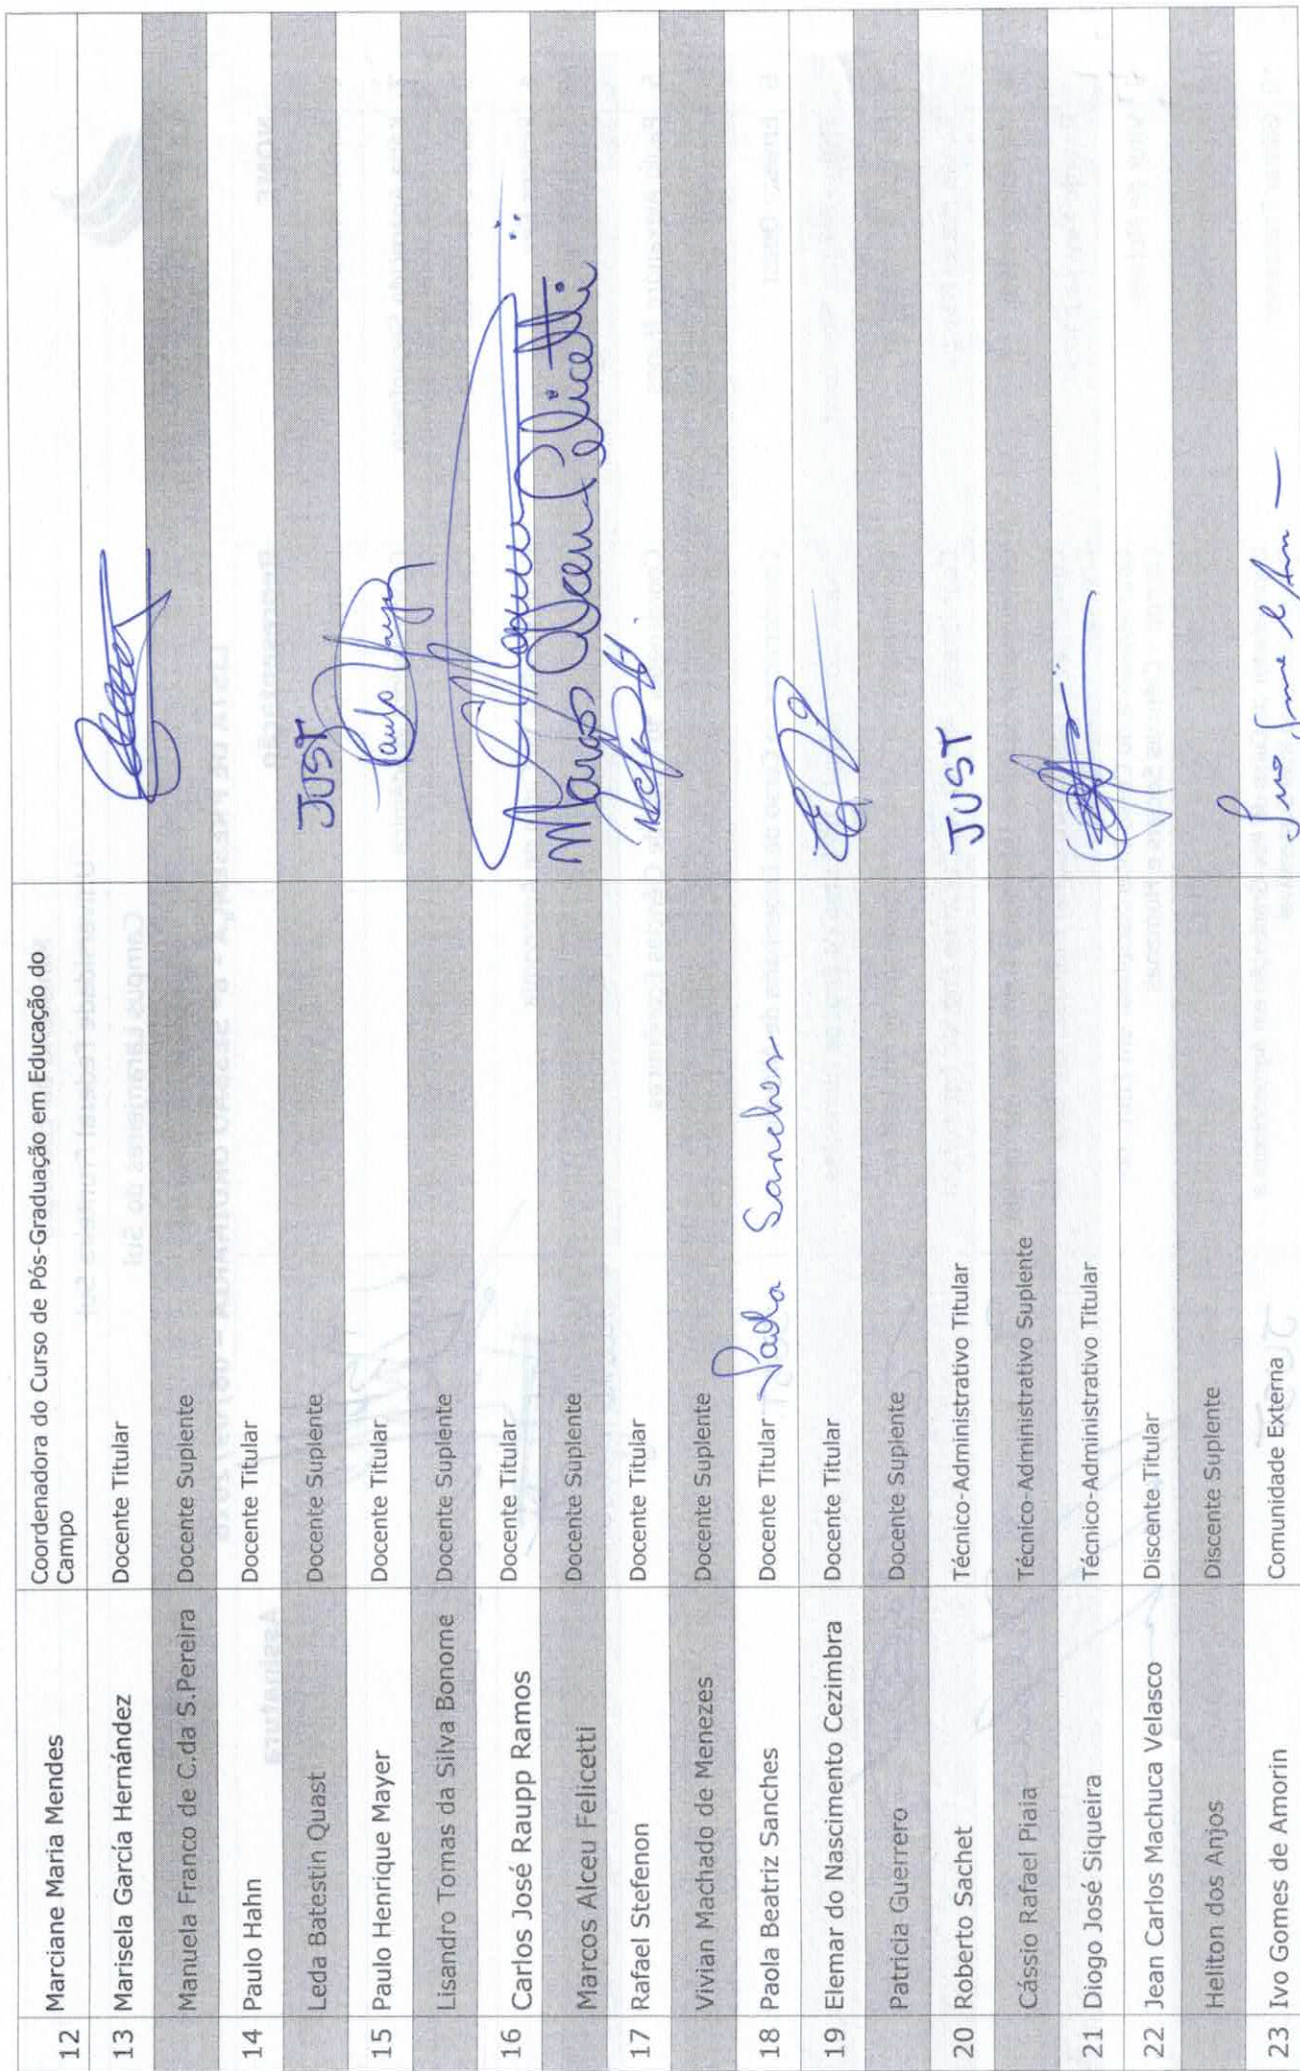 12 Marciane Maria Mendes Coordenadora do Curso de Pós-Graduação em Educação do
Campo
13 Marisela García Hernández Docente Titular
Manuela Franco de C.da S.Pereira Docente Suplente
14 Paulo Hahn Docente Titular
Leda Batestin Quast Docente Suplente JUST
15 Paulo Henrique Mayer Docente Titular Paulo Mayer
Lisandro Tomas da Silva Bonome Docente Suplente
16 Carlos José Raupp Ramos Docente Titular
Marcos Alceu Felicetti Docente Suplente Marcos Alceu Felicetti
17 Rafael Stefenon Docente Titular
Vivian Machado de Menezes Docente Suplente
18 Paola Beatriz Sanches Docente Titular Paola Sanches
19 Elemar do Nascimento Cezimbra Docente Titular
Patricia Guerrero Docente Suplente
20 Roberto Sachet Técnico-Administrativo Titular JUST
Cássio Rafael Piaia Técnico-Administrativo Suplente
21 Diogo José Siqueira Técnico-Administrativo Titular
22 Jean Carlos Machuca Velasco Discente Titular
Heliton dos Anjos Discente Suplente
23 Ivo Gomes de Amorin Comunidade Externa